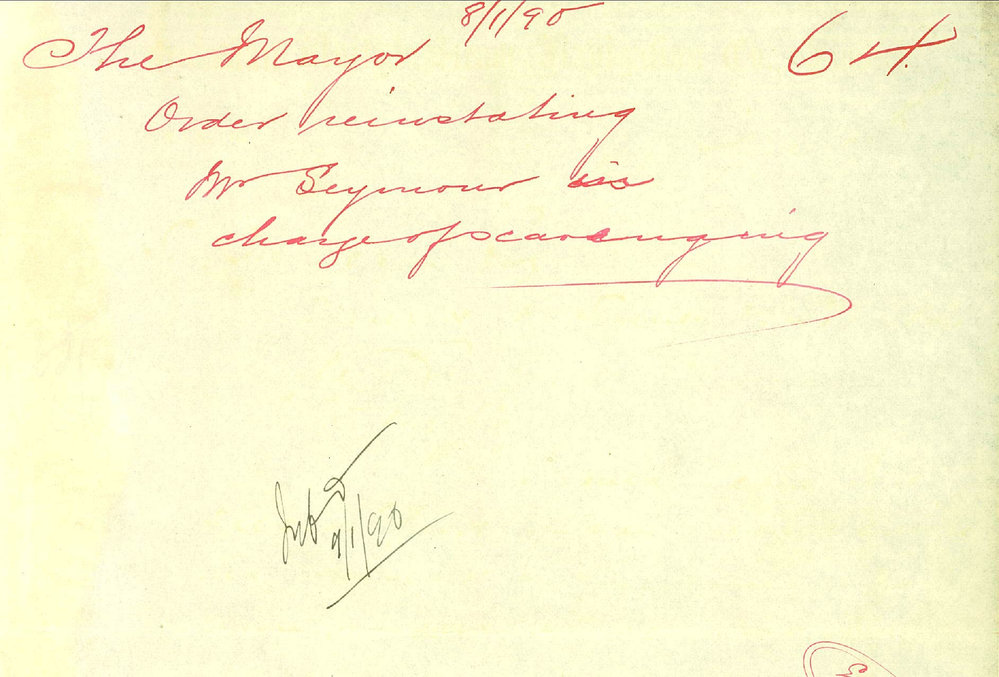 8/1/90
The Mayor
64.
Order reinstating
Mr Seymour in
charge of scavenging
9/1/90
E